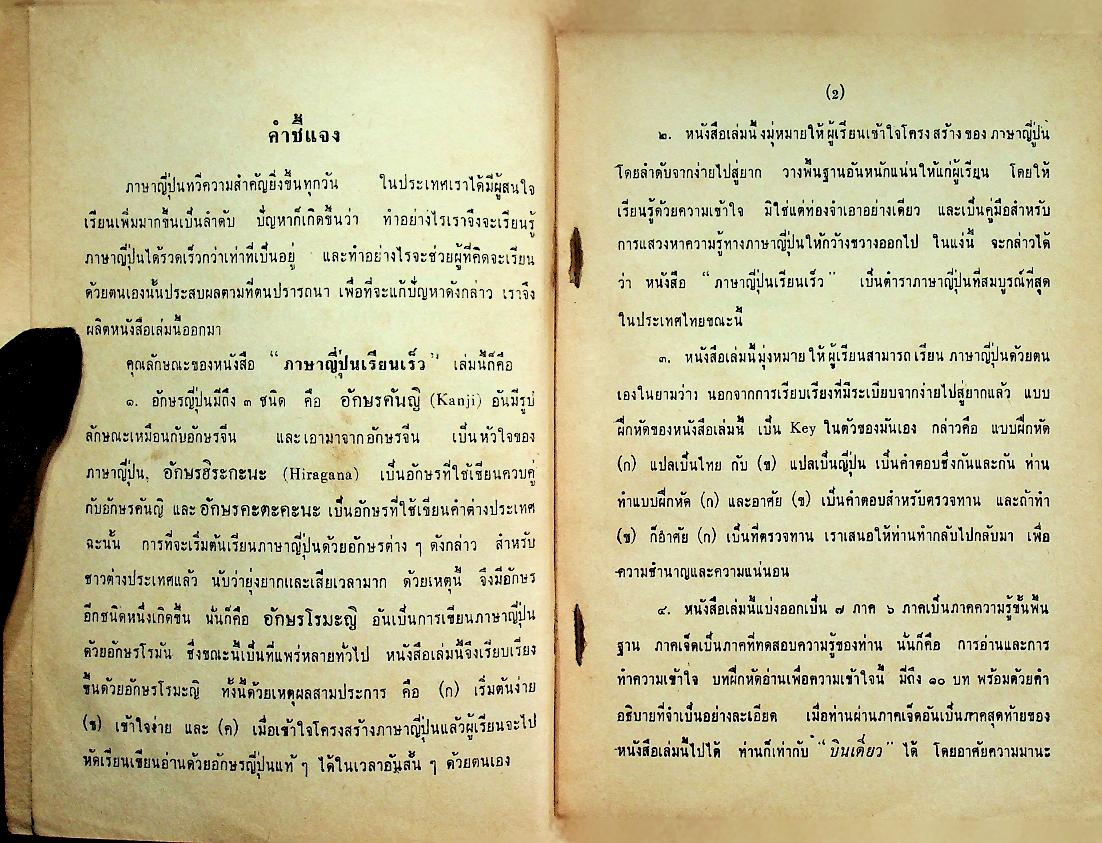 คำชี้แจง
ภาษาญี่ปุ่นทวีความสำคัญยิ่งขึ้นทุกวัน ในประเทศเราได้มีผู้สนใจ
เรียนเพิ่มมากขึ้นเป็นลำดับ ปัญหาก็เกิดขึ้นว่า ทำอย่างไรเราจึงจะเรียนรู้
ภาษาญี่ปุ่นได้รวดเร็วกว่าเท่าที่เป็นอยู่ และทำอย่างไรจะช่วยผู้ที่คิดจะเรียน
ด้วยตนเองนั้นประสบผลตามที่ตนปรารถนา เพื่อที่จะแก้ปัญหาดังกล่าว เราจึง
ผลิตหนังสือเล่มนี้ออกมา
คุณลักษณะของหนังสือ “ภาษาญี่ปุ่นเรียนเร็ว” เล่มนี้ก็คือ
๑. อักษรญี่ปุ่นมีถึง ๓ ชนิด คือ อักษรคันญิ (Kanji) อันมีรูป
ลักษณะเหมือนกับอักษรจีน และเอามาจากอักษรจีน เป็นหัวใจของ
ภาษาญี่ปุ่น, อักษรฮิระกะนะ (Hiragana) เป็นอักษรที่ใช้เขียนควบคู่
กับอักษรคันญิ และอักษรคะตะคะนะ เป็นอักษรที่ใช้เขียนคำต่างประเทศ
ฉะนั้น การที่จะเริ่มต้นเรียนภาษาญี่ปุ่นด้วยอักษรต่าง ๆ ดังกล่าว สำหรับ
ชาวต่างประเทศแล้ว นับว่ายุ่งยากและเสียเวลามาก ด้วยเหตุนี้ จึงมีอักษร
อีกชนิดหนึ่งเกิดขึ้น นั่นก็คือ อักษรโรมะญิ อันเป็นการเขียนภาษาญี่ปุ่น
ด้วยอักษรโรมัน ซึ่งขณะนี้เป็นที่แพร่หลายทั่วไป หนังสือเล่มนี้จึงเรียบเรียง
ขึ้นด้วยอักษรโรมะญิ ทั้งนี้ด้วยเหตุผลสามประการ คือ (ก) เริ่มต้นง่าย
(ข) เข้าใจง่าย และ (ค) เมื่อเข้าใจโครงสร้างภาษาญี่ปุ่นแล้วผู้เรียนจะไป
หัดเรียนเขียนอ่านด้วยอักษรญี่ปุ่นแท้ ๆ ได้ในเวลาอันสั้น ๆ ด้วยตนเอง
(2)
๒. หนังสือเล่มนี้ มุ่งหมายให้ ผู้เรียนเข้าใจโครง สร้าง ของ ภาษาญี่ปุ่น
โดยลำดับจากง่ายไปสู่ยาก วางพื้นฐานอันหนักแน่นให้แก่ผู้เรียน โดยให้
เรียนรู้ด้วยความเข้าใจ มิใช่แต่ท่องจำเอาอย่างเดียว และเป็นคู่มือสำหรับ
การแสวงหาความรู้ทางภาษาญี่ปุ่นให้กว้างขวางออกไป ในแง่นี้ จะกล่าวได้
ว่า หนังสือ “ภาษาญี่ปุ่นเรียนเร็ว” เป็นตำราภาษาญี่ปุ่นที่สมบูรณ์ที่สุด
ในประเทศไทยขณะนี้
๓. หนังสือเล่มนี้ มุ่งหมาย ให้ ผู้เรียนสามารถ เรียน ภาษาญี่ปุ่นด้วยตน
เองในยามว่าง นอกจากการเรียบเรียงที่มีระเบียบจากง่ายไปสู่ยากแล้ว แบบ
ฝึกหัดของหนังสือเล่มนี้ เป็น Key ในตัวของมันเอง กล่าวคือ แบบฝึกหัด
(ก) แปลเป็นไทย กับ (ข) แปลเป็นญี่ปุ่น เป็นคำตอบซึ่งกันและกัน ท่าน
ทำแบบฝึกหัด (ก) และอาศัย (ข) เป็นคำตอบสำหรับตรวจทาน และถ้าทำ
(ข) ก็อาศัย (ก) เป็นที่ตรวจทาน เราเสนอให้ท่านทำกลับไปกลับมา เพื่อ
ความชำนาญและความแน่นอน
๔. หนังสือเล่มนี้แบ่งออกเป็น ๗ ภาค ๖ ภาคเป็นภาคความรู้ขั้นพื้น
ฐาน ภาคเจ็ดเป็นภาคที่ทดสอบความรู้ของท่าน นั่นก็คือ การอ่านและการ
ทำความเข้าใจ บทฝึกหัดอ่านเพื่อความเข้าใจนี้ มีถึง ๑๐ บท พร้อมด้วยคำ
อธิบายที่จำเป็นอย่างละเอียด เมื่อท่านผ่านภาคเจ็ดอันเป็นภาคสุดท้ายของ
หนังสือเล่มนี้ไปได้ ท่านก็เท่ากับ “บินเดี่ยว” ได้ โดยอาศัยความมานะ